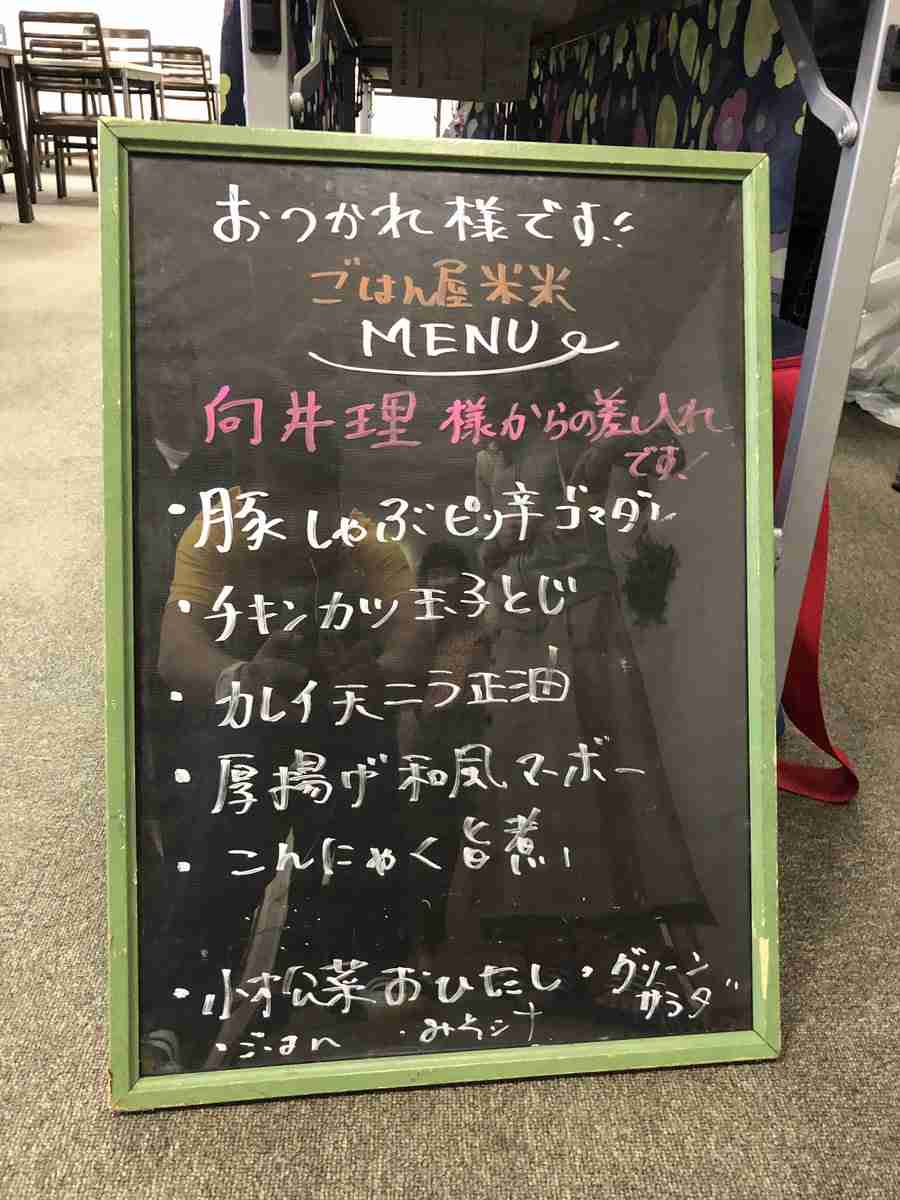 おつかれ様です!!
ごはん屋米米
MENU
向井理 様からの差し入れ
です!
・豚しゃぶピリ辛ゴマダレ
・チキンカツ玉子とじ
・カレイ天ニラ正油
・厚揚げ和風マーボー
・こんにゃく旨煮
・小松菜おひたし・グリーン
サラダ
・ごはん ・みそ汁